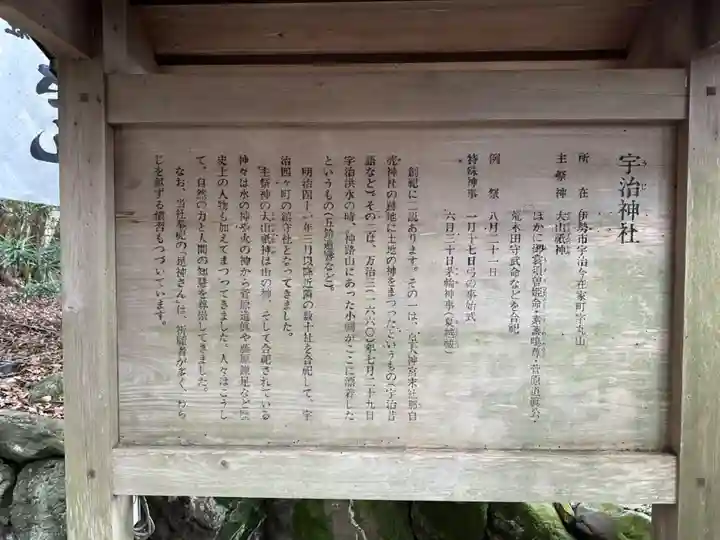 宇治神社
うじ
所在 伊勢市宇治今在家町字丸山
主祭神 大山祇神
ほかに 須曽姫命・素盞嗚尊・菅原道真公・
荒木田守武命などを合祀
例祭 八月二十一日
特殊神事 一月十七日弓の事始式
六月三十日茅輪神事(夏越祓)
創祀に二説あります。その一は、皇大神宮末社那自
売神社の跡地に土地の神をまつったというもの(宇治昔
語など)。その二は、万治三(一六六〇)年七月二十九日
宇治洪水の時、神路山にあった小祠がここに漂着した
というもの(五鈴遺響など)。
明治四十一年三月以降近隣の数十社を合祀して、宇
治四ヶ町の鎮守社となってきました。
主祭神の大山祇神は山の神、そして合祀されている
神々は水の神や火の神から菅原道真や藤原鎌足など歴
史上の人物も加えてまつってきました。人々はこうし
て、自然の力と人間の知慧を尊崇してきました。
なお、当社奉祀の「足神さん」は、祈願者が多く、わら
じを献ずる慣習もつづいています。